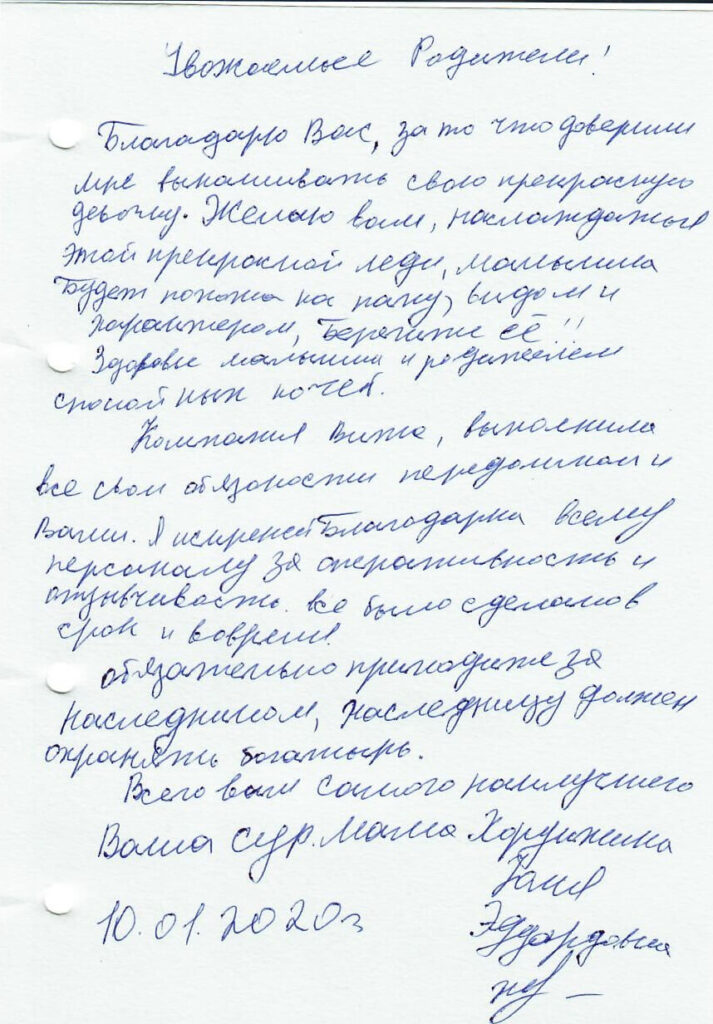 Уважаемые Родители!
Благодарю Вас, за то что доверили
мне вынашивать свою прекрасную
девочку. Желаю вам, наслаждаться
этой прекрасной леди, малышка
Будет похожа на папу, видом и
характером, Берегите её!!
Здоровье малышки и родителем
спокойных ночей.
Компания Вита, выполнила
все свои обязаности передомной и
Вами. Я искреней Благодарна всему
персоналу за оперативность и
отзывчивость. все было сделанов
срок и вовремя.
обязательно приходите за
наследником, наследницу должен
охранять богатырь.
Всего вам самого наилучшего
Ваша сур. мама Хоружина
Эдуардовна
10.01.2020г